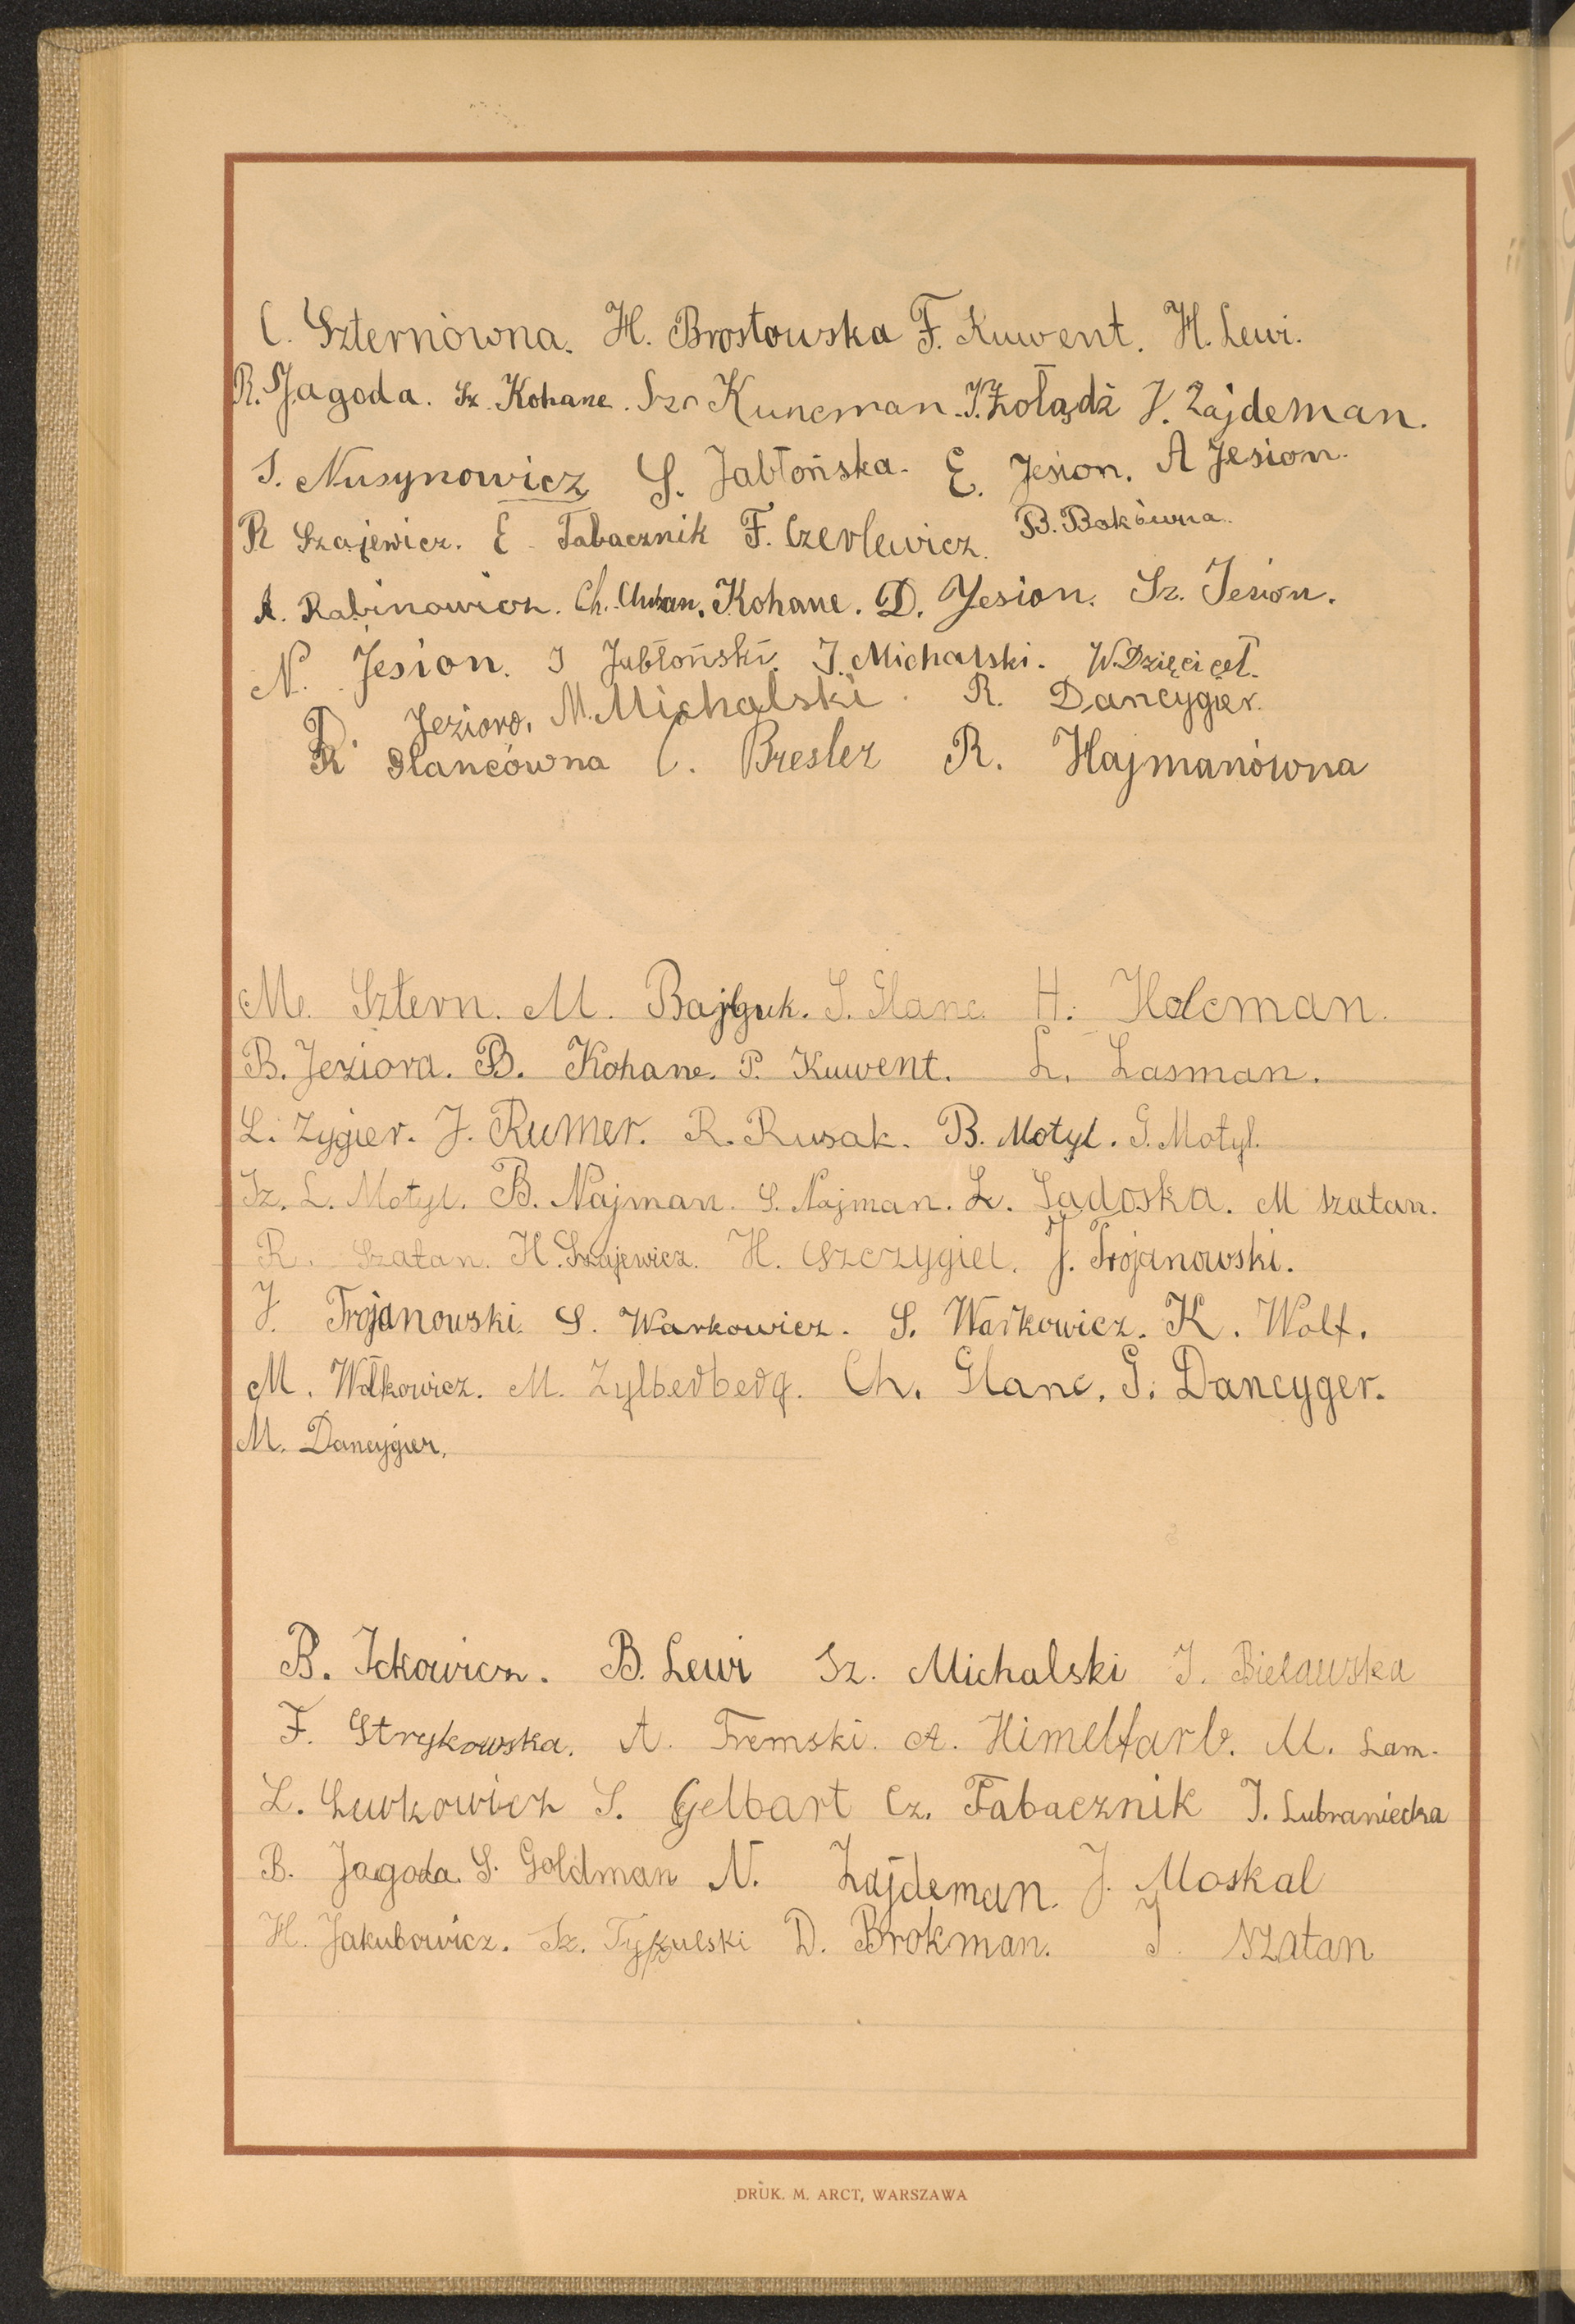 C. Szternówna. H. Brostowska F. Kuwent. H. Lewi.
R. Jagoda. Sz. Kohane. Sz. Kuncman. J. Żołądź J. Zajdeman.
S. Nusynowicz S. Jabłońska. E. Jesion. A Jesion.
R Szajewicz. E. Tabacznik F. Czerlewicz. B. Bokówna.
A. Rabinowicz. Ch. Kohane. D. Jesion. Sz. Jesion.
N. Jesion. I Jabłoński. J. Michalski. W. Dzięcięł.
D. Jezioro. M. Michalski. R. Dancygier.
R Glancówna C. Bresler R. Hajmanówna
M. Sztern. M. Bajbuk. S. Glanc. H. Holcman.
B. Jeziora. B. Kohane. P. Kuwent. L. Lasman.
L. Zygier. J. Rumer. R. Rusak. B. Motyl. G. Motyl.
Sz. L. Motyl. B. Najman. S. Najman. L. Sadoska. M Szatan.
R. Szatan. H. Szajewicz. H. Szczygieł. J. Trojanowski.
J. Trojanowski. S. Warkowicz. S. Warkowicz. K. Wolf.
M. Wołkowicz. M. Zylberberg. Ch. Glanc. G. Dancyger.
M. Dancygier.
B. Ickowicz. B. Lewi Sz. Michalski J. Bielawska
F. Strykowska. A. Fremski. A. Himelfarb. M. Lam.
L. Lewkowicz S. Gelbart Cz. Tabacznik J. Lubraniecka
B. Jagoda. S. Goldman N. Zajdeman. J. Moskal
H. Jakubowicz. Sz. D. Brokman. J. Szatan
DRUK. M. ARCT, WARSZAWA